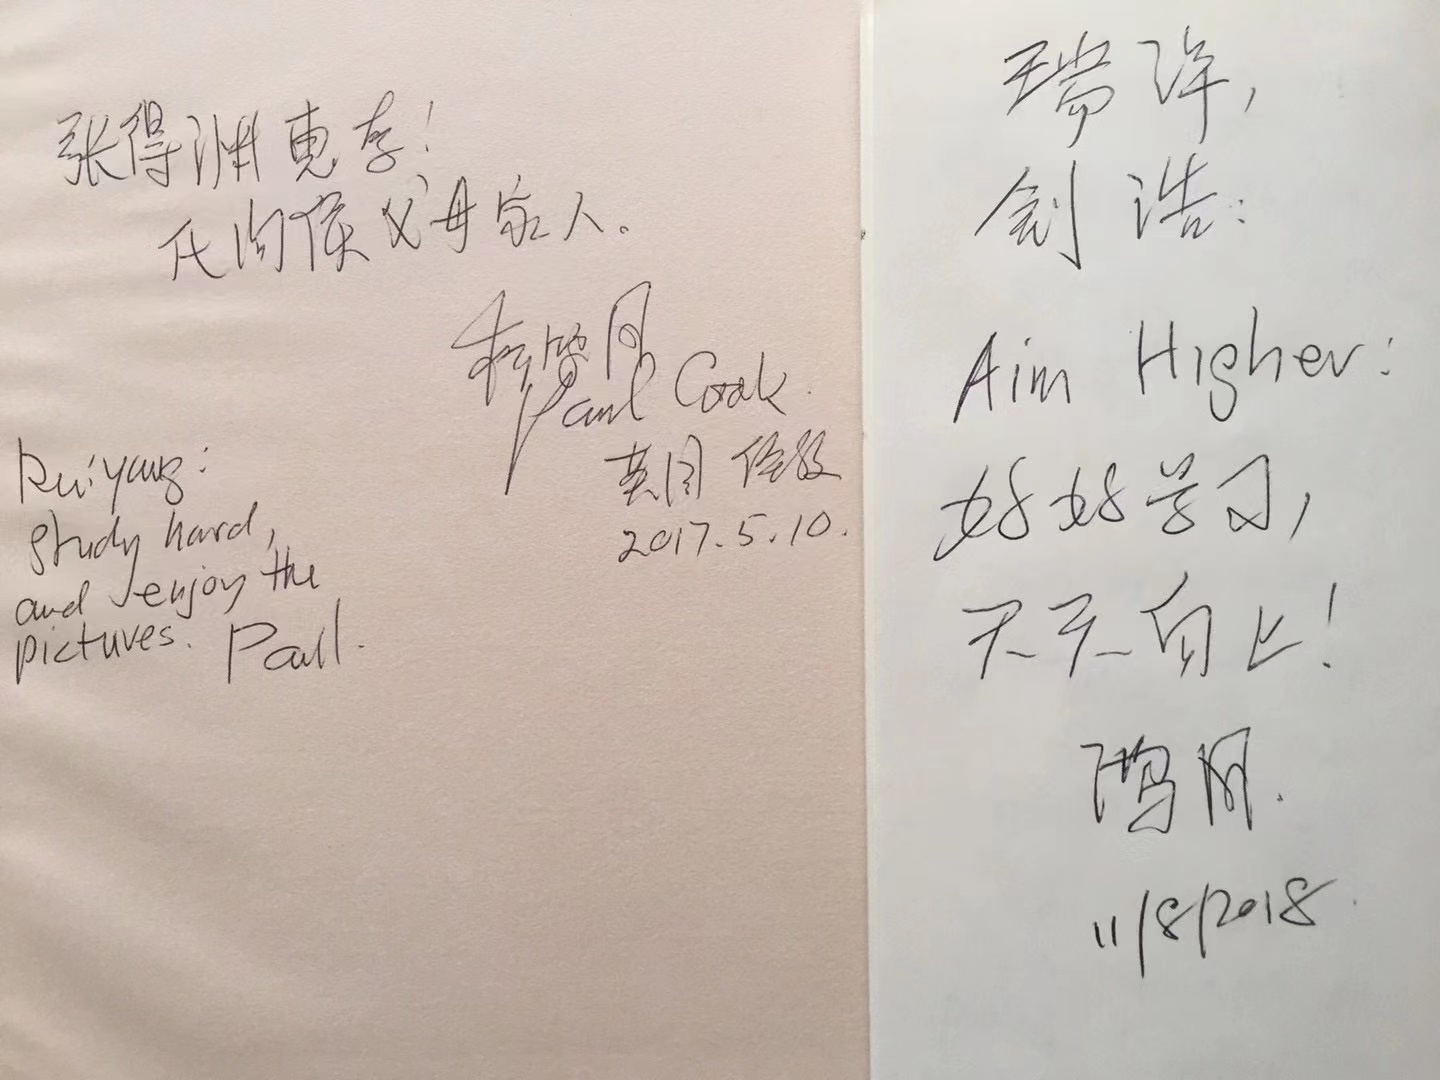 张得渊惠存!
氏问候父母家人。
Paul Crook.
英国
2017.5.10.
Ruiyang:
study hard,
and enjoy the
pictures. Paul.
瑞洋,
剑浩:
Aim Higher:
好好学习,
天天向上!
鸿网.
11/8/2018.